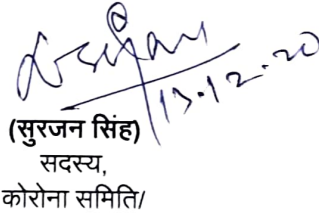 13.12.20
(सुरजन सिंह)
सदस्य,
कोरोना समिति/